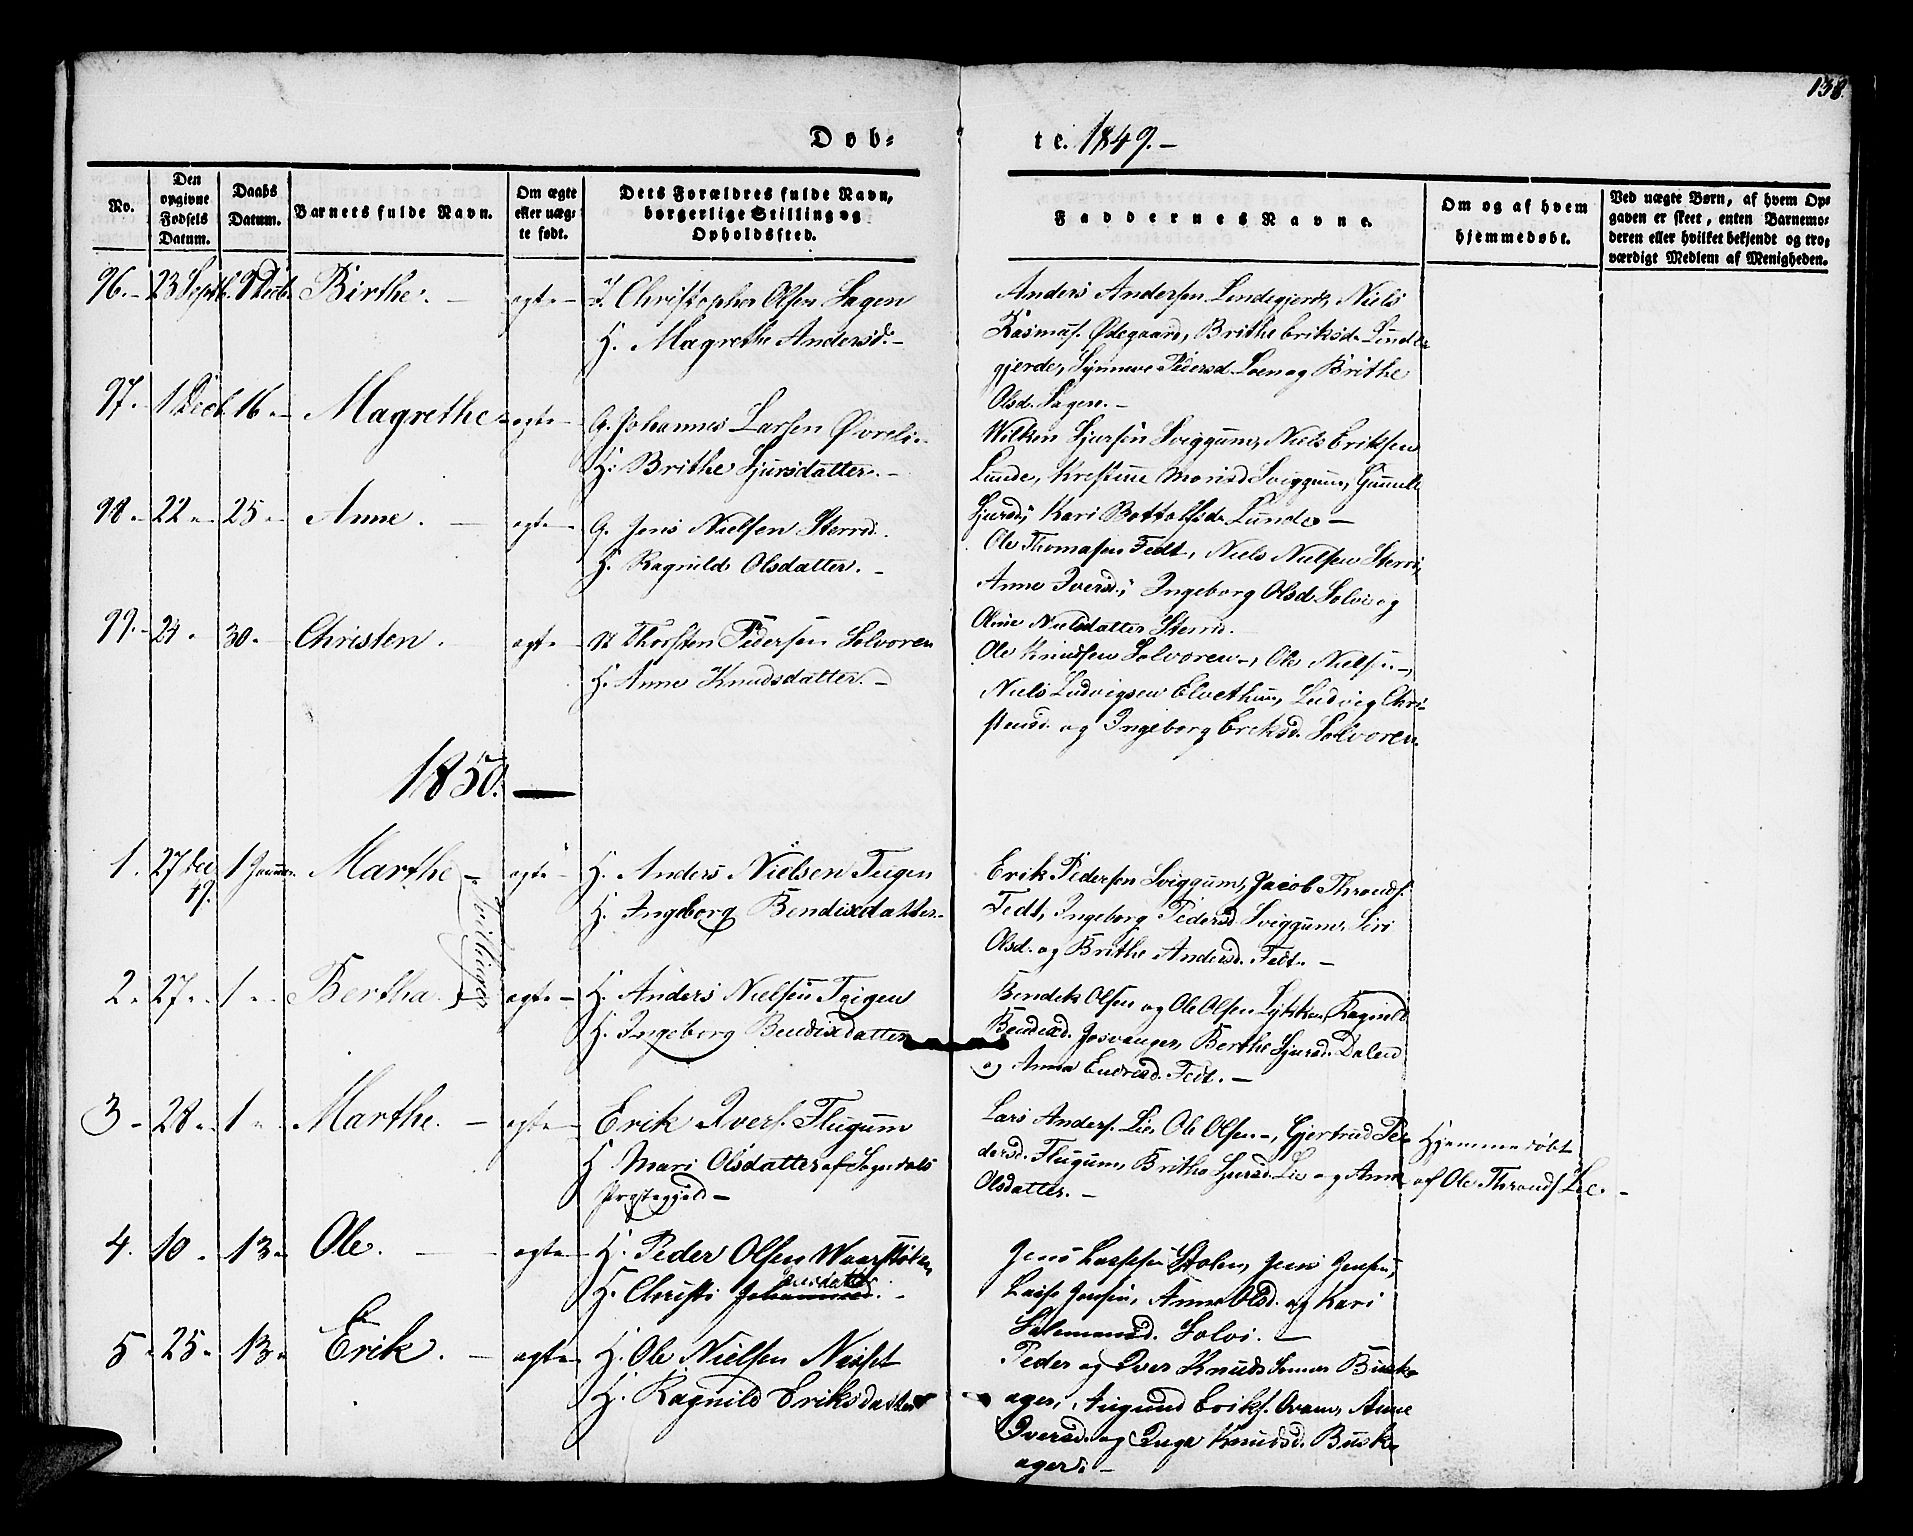 138.
Døb-
te. 1849. -
No.
Den
opgivne
Fødsels
Datum.
Daabs
Datum.
Barnets fulde Navn.
Om ægte
eller uæg-
te født.
Dets Forældres fulde Navn,
borgerlige Stilling og
Opholdssted.
Faddernes Navne.
Om og af hvem
hjemmedøbt.
Ved uægte Børn, af hvem Op-
gaven er skeet, enten Barnemo-
deren eller hvilket bekjendt og tro-
værdigt Medlem af Menigheden.
96. - 23 Septb. 9 Decb. Birthe. - ægte - Christopher Olsen Hagen
H. Magrethe Andersd. -
Anders Andersen Lindegjerd, Niels
Rasmus. Ødegaard, Brithe Eriksd. Linde-
gjerde, Synneve Pedersd. Loen og Brithe
Olsd. Hagen. -
97. 1 Decb. 16. - Magrethe - ægte - G. Johannes Larsen Øvreli -
H. Brithe Sjursdatter. -
Wilken Sjursen Sviggum, Niels Eriksen
Lunde, Kristine Monsd. Sviggum, Gunild
Sjursd., Kari Bottolfsd. Lunde -
98. - 22 - 25 - Anne. - ægte - G. Jens Nielsen Sterri.
H. Ragnild Olsdatter. -
Ole Thomasen Fedt, Niels Nielsen Sterri,
Anne Iversd., Ingeborg Olsd. Solvi og
Oline Nielsdatter Sterri. -
99. - 24 - 30 - Christen. - ægte - Thorsten Pedersen Solvoren
H. Anne Knudsdatter. -
Ole Knudsen Solvoren -, Ole Nielsen -,
Niels Ludvigsen Elvethun, Ludvig Chri-
stensd. og Ingeborg Eriksd. Solvoren.
1850. -
1. 27 Dec 49. 1 Januar Marthe - ægte - H. Anders Nielsen Teigen
H. Ingeborg Bendixdatter. -
Tvillinger
Erik Pedersen Sviggum, Jacob Thronds.
Fedt, Ingeborg Pedersd. Sviggum, Siri
Olsd. og Brithe Andersd. Fedt. -
2 - 27 - 1 - Bertha. ægte - H. Anders Nielsen Teigen
H. Ingeborg Bendixdatter
Bendik Olsen og Ole Olsen Lykken, Ragnild
Bendixd. Josvanger, Berthe Sjursd. Daleid
og Anna Endresd. Fedt. -
3 - 28 - 1 - Marthe. - ægte - Erik Ivers. Flugum
H Mari Olsdatter af Sogndals
Præstegjeld -
Lars Anders. Lie, Ole Olsen -, Gjertrud Pe-
dersd. Flugum, Brithe Sjursd. Lie og Anne
Olsdatter. -
Hjemmedøbt
af Ole Thronds. Lie. -
4. 10 - 13 - Ole. - ægte - H. Peder Olsen
H. Christi Johannesd. Jensdatter -
Jens Lassesen Stolen, Jens Jensen,
Lasse Jensen, Anne Olsd. og Kari
Salemonsd. Solvi. -
5 - 25 - 13 - Erik. - ægte - H. Ole Nielsen
H. Ragnild Eriksdatter
Peder og Iver Knuds Sønner Busk-
ager, Augund Eriks. Kvam, Anne
Iversd. og Inge Knudsd. Busk-
ager. -